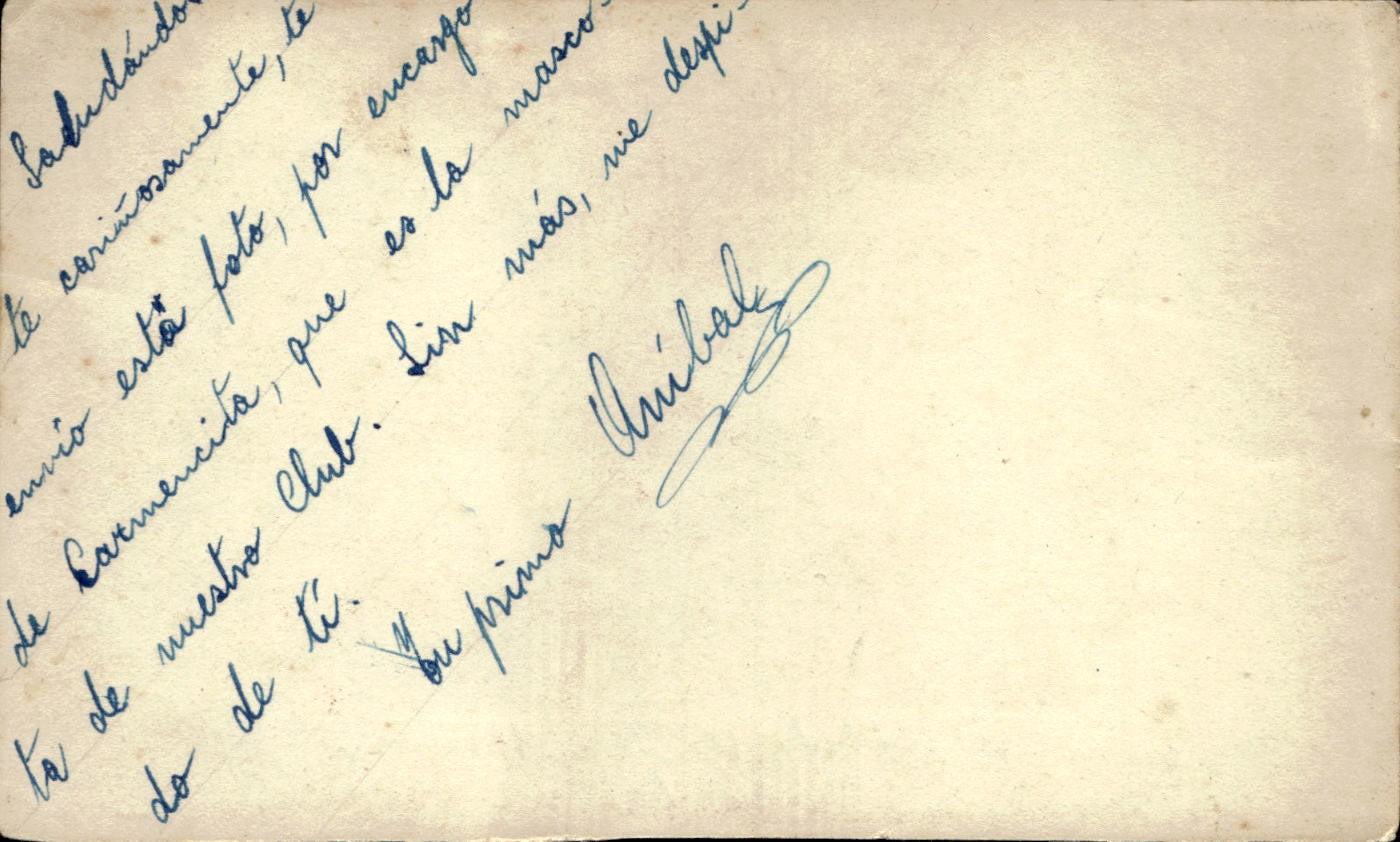 Saludándo-
te cariñosamente, te
envío está foto, por encargo
de Carmencita, que es la masco-
ta de nuestro Club. Sin más, me despi-
do de tí.
Tu primo
Aníbal